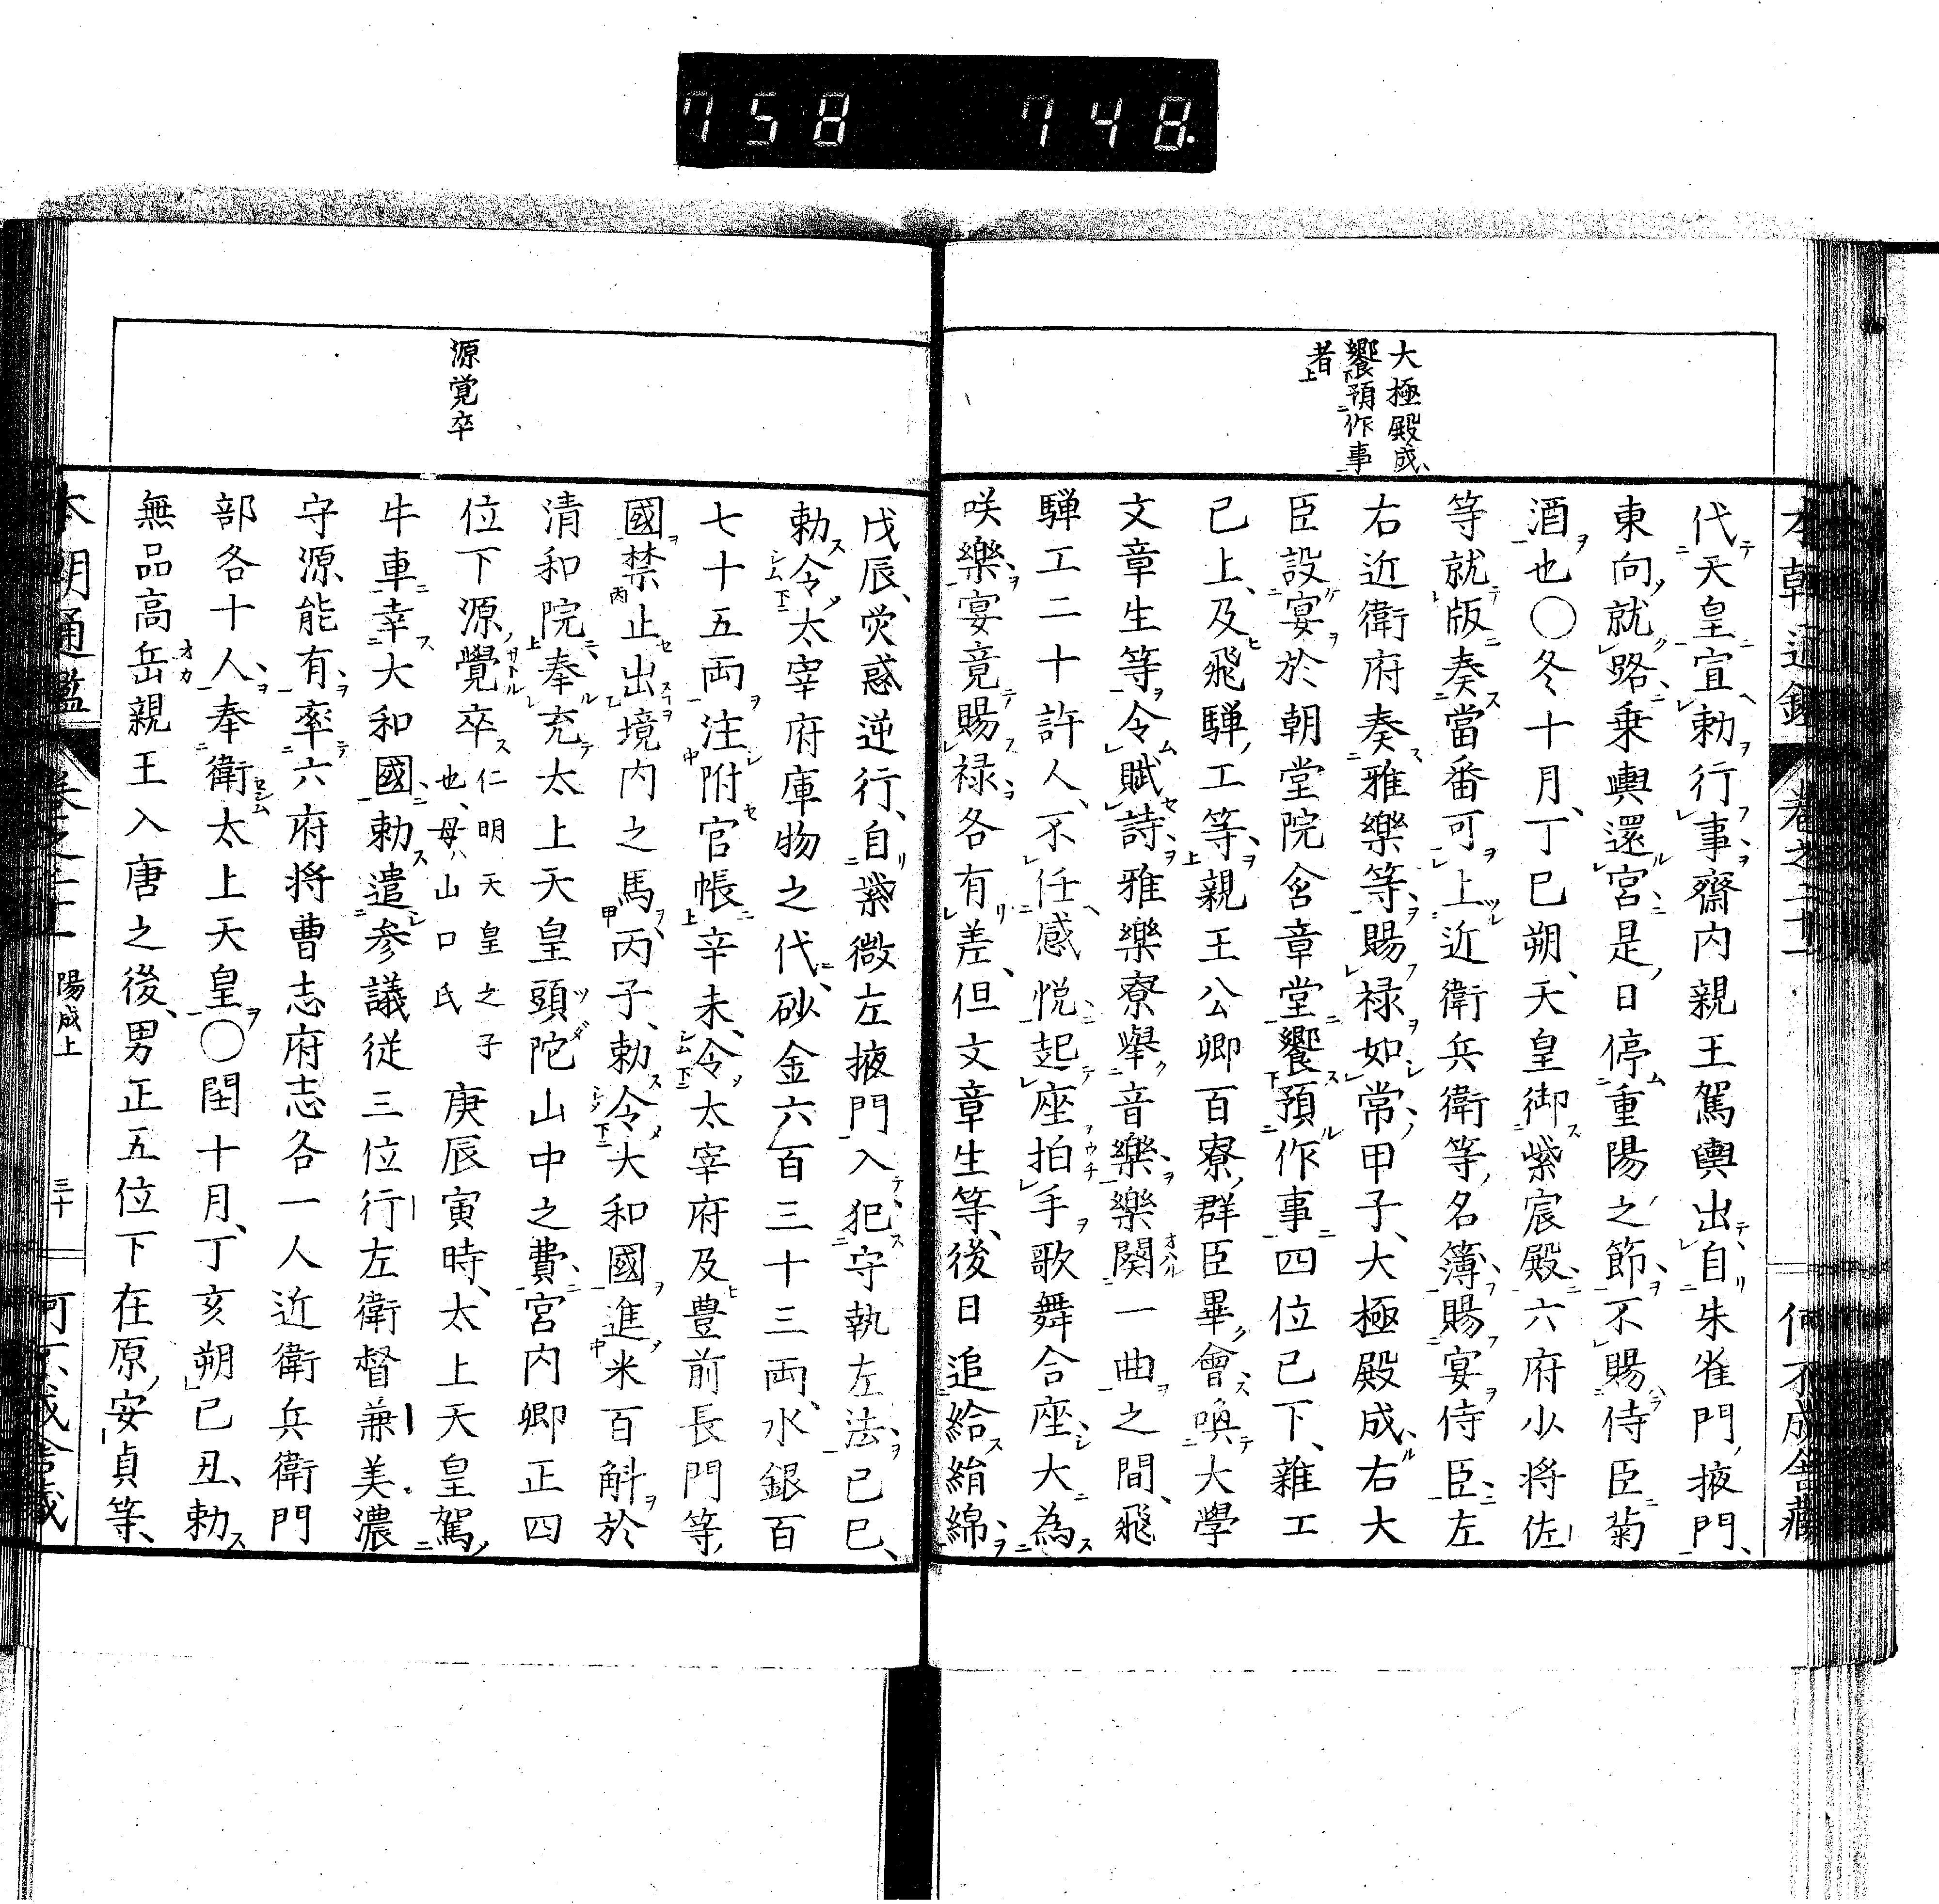 758 748.
大極殿成、
饗預作事
者
代天皇宣勅行事、齋内親王駕輿出、自朱雀門、掖門、
東向、就路、乗輿還宮、是日停重陽之節、不賜侍臣菊
酒也〇冬十月、丁巳朔、天皇御紫宸殿、六府少将佐
等就版奏當番可上近衛兵衛等、名簿、賜宴侍臣、左
右近衛府奏雅樂等、賜禄如常、甲子、大極殿成、右大
臣設宴於朝堂院含章堂、饗預作事四位已下、雜工
已上、及飛騨、工等、親王公卿百寮、群臣畢會、喚大學
文章生等、令賦詩、雅樂寮舉音樂、樂闋一曲之間、飛
騨工二十許人、不任感悦、起座拍手歌舞合座、大為
咲樂、宴竟賜禄、各有差、但文章生等、後日追給絹綿、
戊辰、熒惑逆行、自紫微左掖門入、犯守執左法、己巳、
勅令太宰府庫物之代、砂金六百三十三兩、水銀百
七十五兩注附官帳、辛未、令太宰府及豊前長門等、
國禁止出境内之馬、丙子、勅令大和國進米百斛於
清和院、奉充太上天皇頭陀山中之費、宮内卿正四
位下源覺卒 仁明天皇之子
也、母ハ山口氏 庚辰寅時、太上天皇駕
牛車幸大和國、勅遣參議従三位行左衛督兼美濃
守源能有、率六府将曹志府志各一人近衛兵衛門
部各十人、奉衛太上天皇〇閏十月、丁亥朔己丑、勅
無品高岳親王入唐之後、男正五位下在原安貞等、
源覺卒
本朝通鑑 陽成上 三十